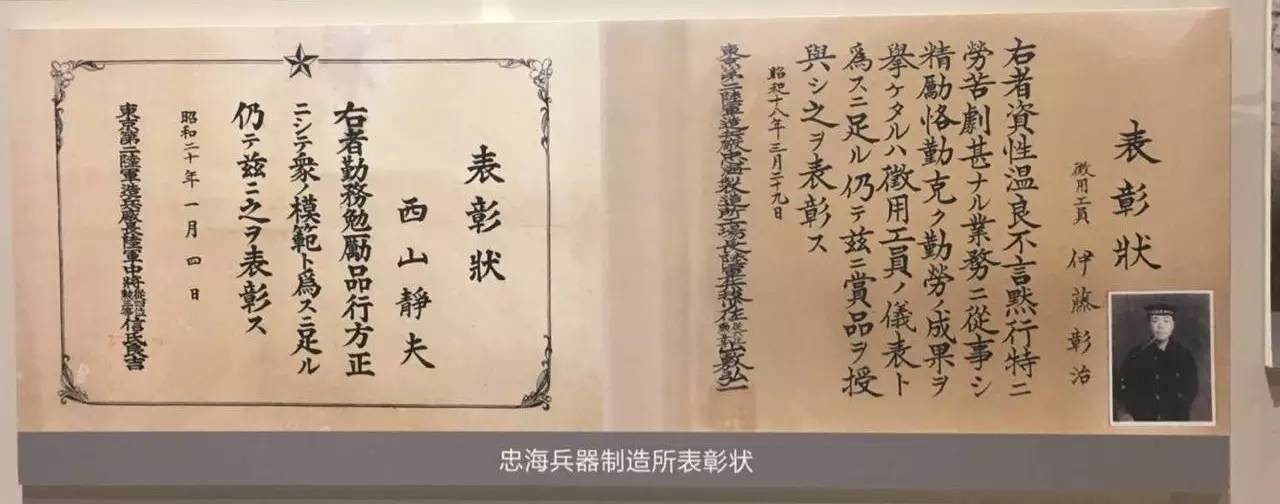 表彰狀
徴用工員 伊藤彰治
右者資性温良不言黙行特ニ
勞苦劇甚ナル業務ニ從事シ
精勵恪勤克ク勤勞ノ成果ヲ
擧ケタルハ徴用工員ノ儀表ト
爲スニ足ル仍テ茲ニ賞品ヲ授
與シ之ヲ表彰ス
昭和十八年三月二十九日
東京第二陸軍造兵廠忠海製造所工場長陸軍兵技
表彰狀
西山靜夫
右者勤務勉勵品行方正
ニシテ衆ノ模範ト爲スニ足ル
仍テ茲ニ之ヲ表彰ス
昭和二十年一月四日
東京第二陸軍造兵廠長陸軍中將 信氏良吉
忠海兵器制造所表彰状